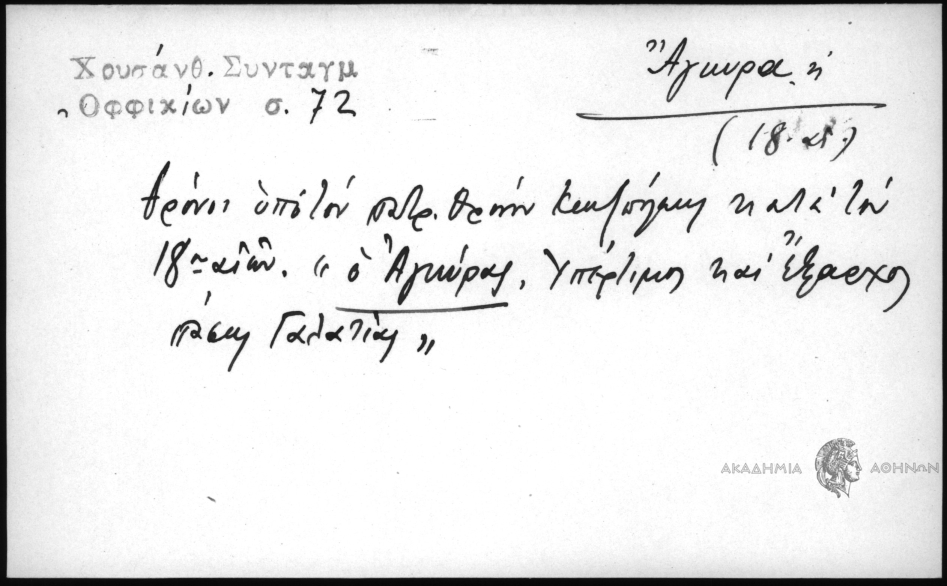 Χρυσάνθ. Συνταγμ
Ὀφφικίων σ. 72
Ἄγκυρα, ἡ
(18. αἰ.)
θρόνοι ὑπό τόν πατρ. θρόνον Κων/πόλεως κατά τόν
18ον αἰῶν. "ὁ Ἀγκύρας, Ὑπέρτιμος καί Ἔξαρχος
πάσης Γαλατίας"
ΑΚΑΔΗΜΙΑ ΑΘΗΝΩΝ